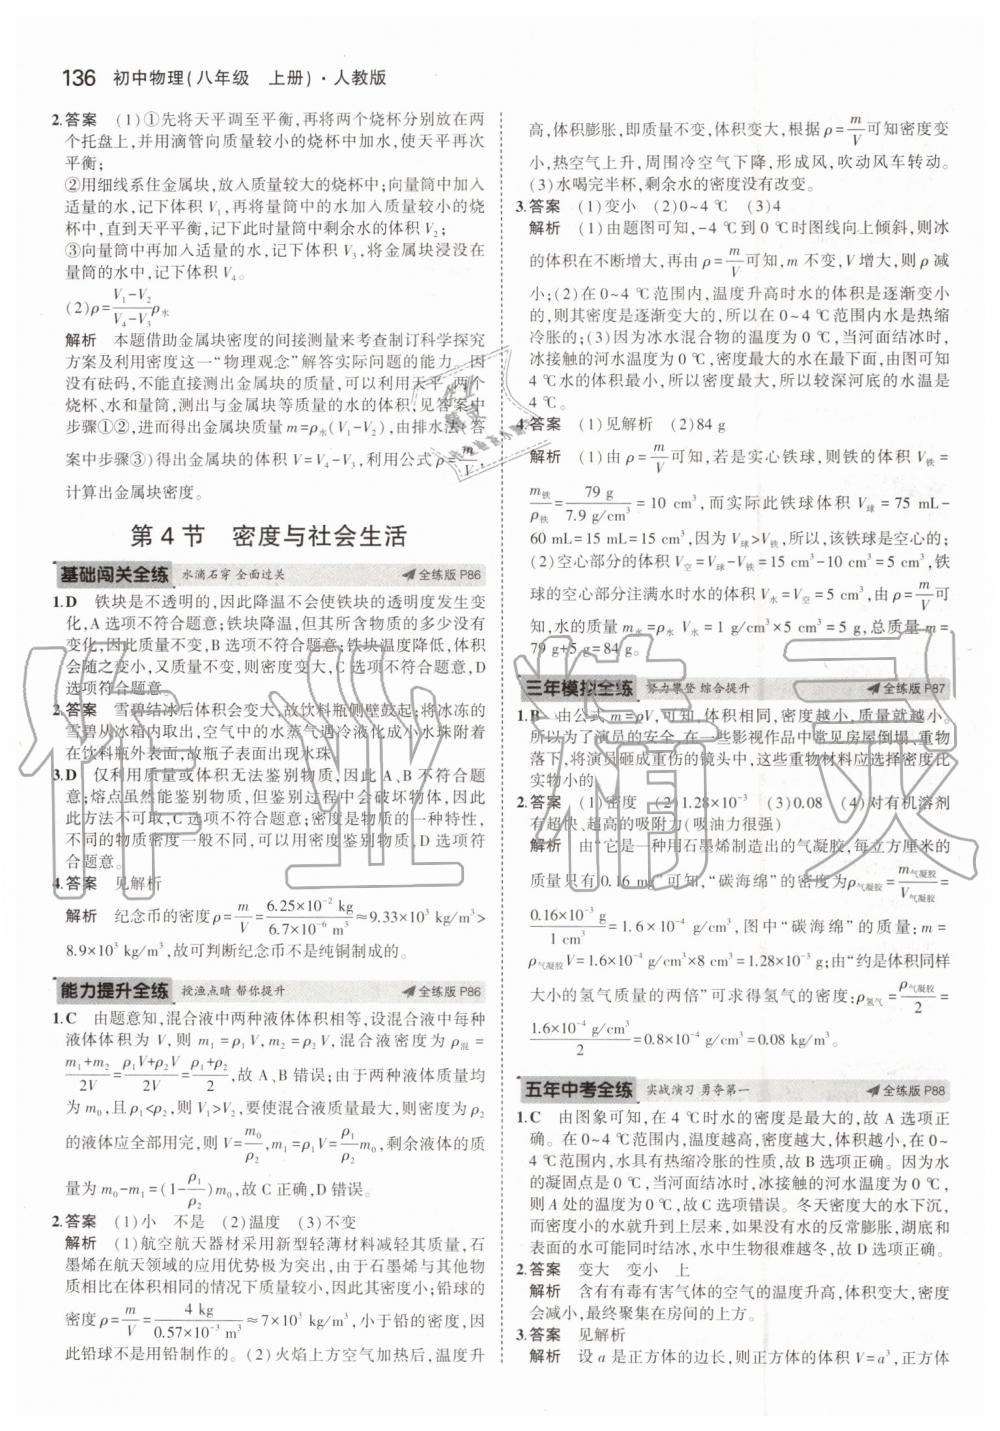 136 初中物理(八年级 上册)·人教版
2.答案 (1)①先将天平调至平衡,再将两个烧杯分别放在两
个托盘上,并用滴管向质量较小的烧杯中加水,使天平再次
平衡;
②用细线系住金属块,放入质量较大的烧杯中;向量筒中加入
适量的水,记下体积 V₁,再将量筒中的水加入质量较小的烧
杯中,直到天平平衡,记下此时量筒中剩余水的体积 V₂;
③向量筒中再加入适量的水,记下体积 V₃,将金属块浸没在
量筒的水中,记下体积 V₄。
(2)ρ=(V₁-V₂)/(V₄-V₃)ρ水
解析 本题借助金属块密度的间接测量来考查制订科学探究
方案及利用密度这一“物理观念”解答实际问题的能力。因
没有砝码,不能直接测出金属块的质量,可以利用天平、两个
烧杯、水和量筒,测出与金属块等质量的水的体积,见答案中
步骤①②,进而得出金属块质量 m=ρ水(V₁-V₂),由排水法(答
案中步骤③)得出金属块的体积 V=V₄-V₃,利用公式 ρ=m/V,
计算出金属块密度。
第4节 密度与社会生活
基础闯关全练 水滴石穿 全面过关 全练版 P86
1.D 铁块是不透明的,因此降温不会使铁块的透明度发生变
化,A 选项不符合题意;铁块降温,但其所含物质的多少没有
变化,因此质量不变,B 选项不符合题意;铁块温度降低,体积
会随之变小,又质量不变,则密度变大,C 选项不符合题意,D
选项符合题意。
2.答案 雪碧结冰后体积会变大,故饮料瓶侧壁鼓起;将冰冻的
雪碧从冰箱内取出,空气中的水蒸气遇冷液化成小水珠附着
在饮料瓶外表面,故瓶子表面出现水珠
3.D 仅利用质量或体积无法鉴别物质,因此 A、B 不符合题
意;熔点虽然能鉴别物质,但鉴别过程中会破坏物体,因此
此方法不可取,C 选项不符合题意;密度是物质的一种特性,
不同的物质密度一般不同,可以鉴别物质,因此 D 选项符
合题意。
4.答案 见解析
解析 纪念币的密度 ρ=m/V=(6.25×10⁻² kg)/(6.7×10⁻⁶ m³)≈9.33×10³ kg/m³>
8.9×10³ kg/m³,故可判断纪念币不是纯铜制成的。
能力提升全练 授渔点睛 帮你提升 全练版 P86
1.C 由题意知,混合液中两种液体体积相等,设混合液中每种
液体体积为 V,则 m₁=ρ₁V,m₂=ρ₂V,混合液密度为 ρ混=
(m₁+m₂)/2V=(ρ₁V+ρ₂V)/2V=(ρ₁+ρ₂)/2,故 A、B 错误;由于两种液体质量均
为 m₀,且 ρ₁<ρ₂,则 V₁>V₂,要使混合液质量最大,则密度为 ρ₂
的液体应全部用完,则 V=m₀/ρ₂,m₁=ρ₁V=(ρ₁/ρ₂)m₀,剩余液体的质
量为 m₀-m₁=(1-ρ₁/ρ₂)m₀,故 C 正确,D 错误。
2.答案 (1)小 不是 (2)温度 (3)不变
解析 (1)航空航天器材采用新型轻薄材料减轻其质量,石
墨烯在航天领域的应用优势极为突出,由于石墨烯与其他物
质比在体积相同的情况下质量较小,因此其密度小;铅球的
密度 ρ=m/V=(4 kg)/(0.57×10⁻³ m³)≈7×10³ kg/m³,小于铅的密度,因
此铅球不是用铅制作的。(2)火焰上方空气加热后,温度升
高,体积膨胀,即质量不变,体积变大,根据 ρ=m/V可知密度变
小,热空气上升,周围冷空气下降,形成风,吹动风车转动。
(3)水喝完半杯,剩余水的密度没有改变。
3.答案 (1)变小 (2)0~4 ℃ (3)4
解析 (1)由题图可知,-4 ℃到 0 ℃时图线向上倾斜,则冰
的体积在不断增大,再由 ρ=m/V可知,m 不变,V 增大,则 ρ 减
小;(2)在 0~4 ℃范围内,温度升高时水的体积是逐渐变小
的,则其密度是逐渐变大的,所以在 0~4 ℃范围内水是热缩
冷胀的;(3)因为冰水混合物的温度为 0 ℃,当河面结冰时,
冰接触的河水温度为 0 ℃,密度最大的水在最下面,由图可知
4 ℃水的体积最小,所以密度最大,所以较深河底的水温是
4 ℃。
4.答案 (1)见解析 (2)84 g
解析 (1)由 ρ=m/V可知,若是实心铁球,则铁的体积 V铁=
m铁/ρ铁=(79 g)/(7.9 g/cm³)=10 cm³,而实际此铁球体积 V球=75 mL-
60 mL=15 mL=15 cm³,因为 V球>V铁,所以,该铁球是空心的;
(2)空心部分的体积 V空=V球-V铁=15 cm³-10 cm³=5 cm³,铁
球的空心部分注满水时水的体积 V水=V空=5 cm³,由 ρ=m/V可
知,水的质量 m水=ρ水 V水=1 g/cm³×5 cm³=5 g,总质量 m=
79 g+5 g=84 g。
三年模拟全练 努力攀登 综合提升 全练版 P87
1.B 由公式 m=ρV,可知,体积相同,密度越小,质量就越小。
所以为了演员的安全,在一些影视作品中常见房屋倒塌、重物
落下,将演员砸成重伤的镜头中,这些重物材料应选择密度比
实物小的
2.答案 (1)密度 (2)1.28×10⁻³ (3)0.08 (4)对有机溶剂
有超快、超高的吸附力(吸油力很强)
解析 由“它是一种用石墨烯制造出的气凝胶,每立方厘米的
质量只有 0.16 mg”可知,“碳海绵”的密度为 ρ气凝胶=m气凝胶/V气凝胶=
(0.16×10⁻³ g)/(1 cm³)=1.6×10⁻⁴ g/cm³,图中“碳海绵”的质量:m=
ρ气凝胶V=1.6×10⁻⁴ g/cm³×8 cm³=1.28×10⁻³ g;由“约是体积同样
大小的氢气质量的两倍”可求得氢气的密度:ρ氢气=ρ气凝胶/2=
(1.6×10⁻⁴ g/cm³)/2=0.8×10⁻⁴ g/cm³=0.08 kg/m³。
五年中考全练 实战演习 勇夺第一 全练版 P88
1.C 由图象可知,在 4 ℃时水的密度是最大的,故 A 选项正
确。在 0~4 ℃范围内,温度越高,密度越大,体积越小,在 0~
4 ℃范围内,水具有热缩冷胀的性质,故 B 选项正确。因为水
的凝固点是 0 ℃,当河面结冰时,冰接触的河水温度为 0 ℃,
则 A 处的温度为 0 ℃,故 C 选项错误。冬天密度大的水下沉,
而密度小的水就升到上层来,如果没有水的反常膨胀,湖底和
表面的水可能同时结冰,水中生物很难越冬,故 D 选项正确。
2.答案 变大 变小 上
解析 含有有毒有害气体的空气的温度升高,体积变大,密度
会减小,最终聚集在房间的上方。
3.答案 见解析
解析 设 a 是正方体的边长,则正方体的体积 V=a³,正方体
作业精灵